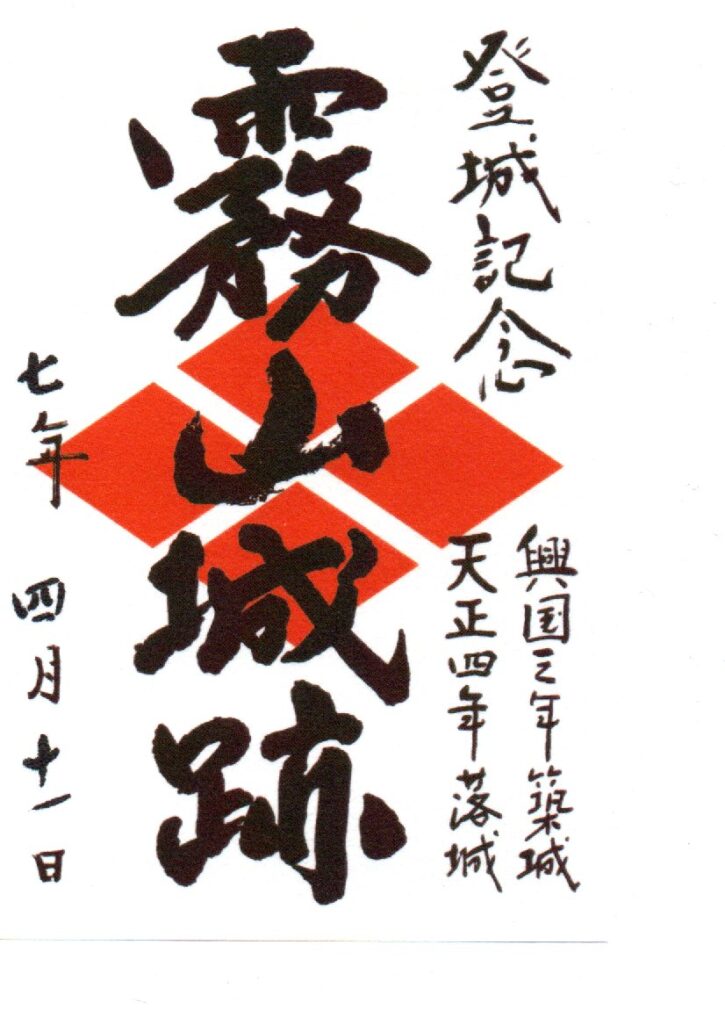 登城記念
興国三年築城
天正四年落城
霧山城跡
七年 四月十一日